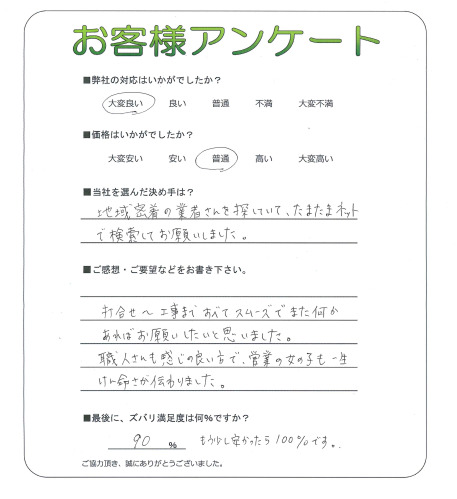 お客様アンケート
■弊社の対応はいかがでしたか?
大変良い 良い 普通 不満 大変不満
■価格はいかがでしたか?
大変安い 安い 普通 高い 大変高い
■当社を選んだ決め手は?
地域密着の業者さんを探していて、たまたまネット
で検索してお願いしました。
■ご感想・ご要望などをお書き下さい。
打合せ〜工事まですべてスムーズでまた何か
あればお願いしたいと思いました。
職人さんも感じの良い方で、営業の女の子も一生
けん命さが伝わりました。
■最後に、ズバリ満足度は何%ですか?
90 % もう少し安かったら100%です。
ご協力頂き、誠にありがとうございました。